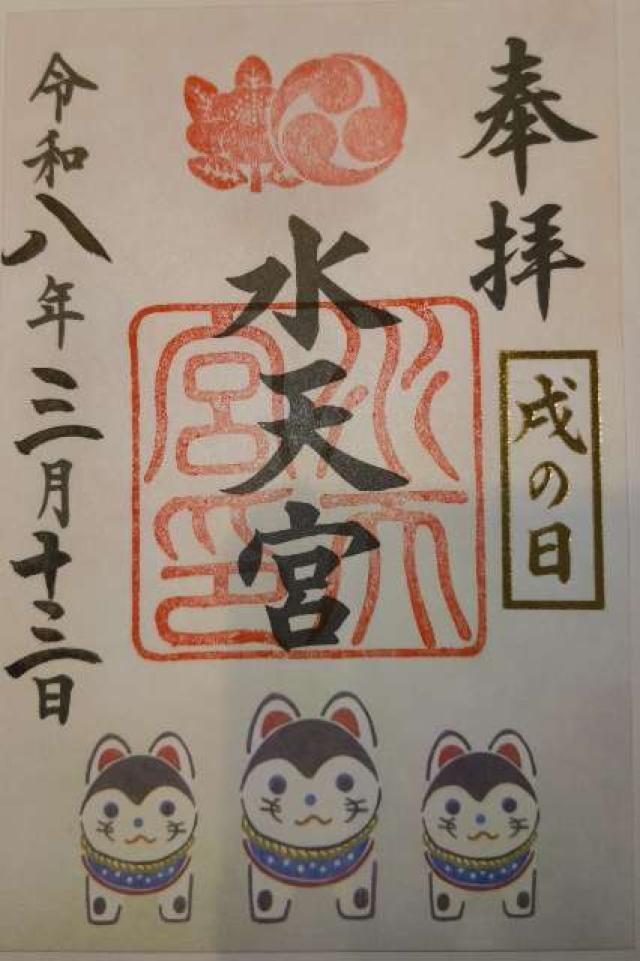 奉拝
戌の日
水天宮
水天宮印
令和八年三月十三日